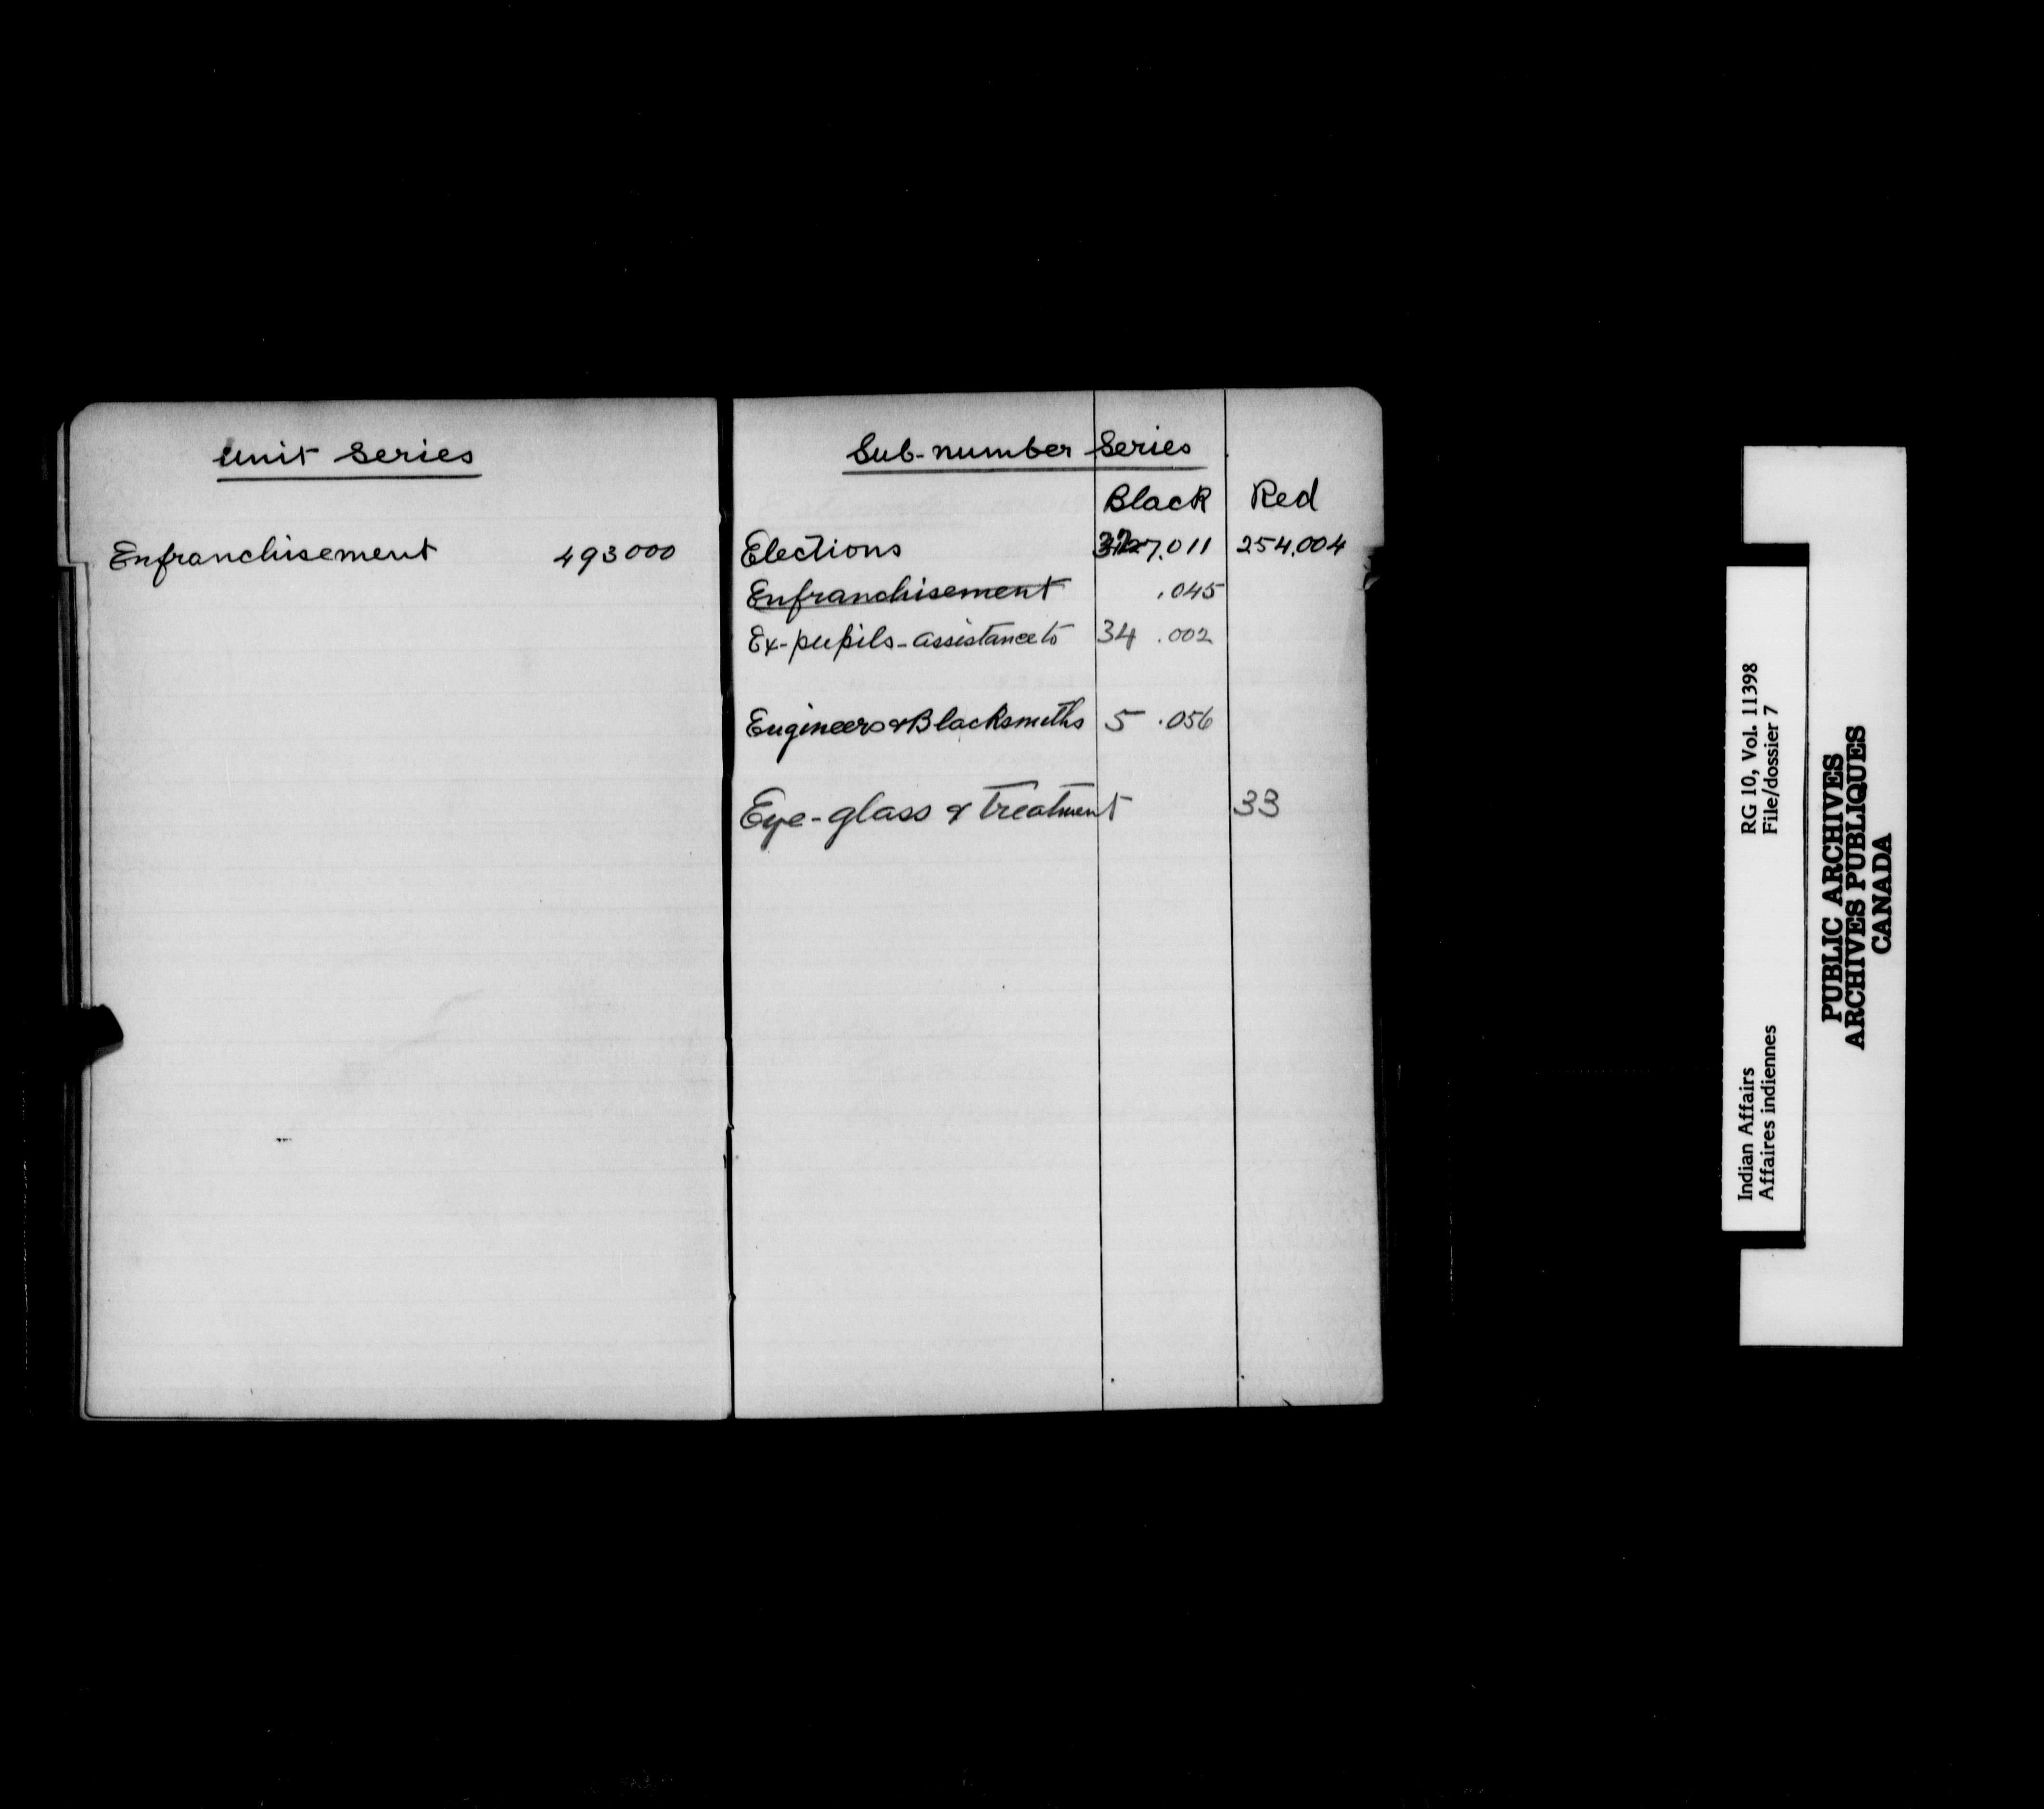 Unit Series
Enfranchisement 493000
Sub-number Series
Black Red
Elections .011 254.004
Enfranchisement .045
Ex-pupils-assistance to 34 .002
Engineers & Blacksmiths 5 .056
Eye-glass & Treatment 33
RG 10, Vol. 11398
File/dossier 7
Indian Affairs
Affaires indiennes
PUBLIC ARCHIVES
ARCHIVES PUBLIQUES
CANADA